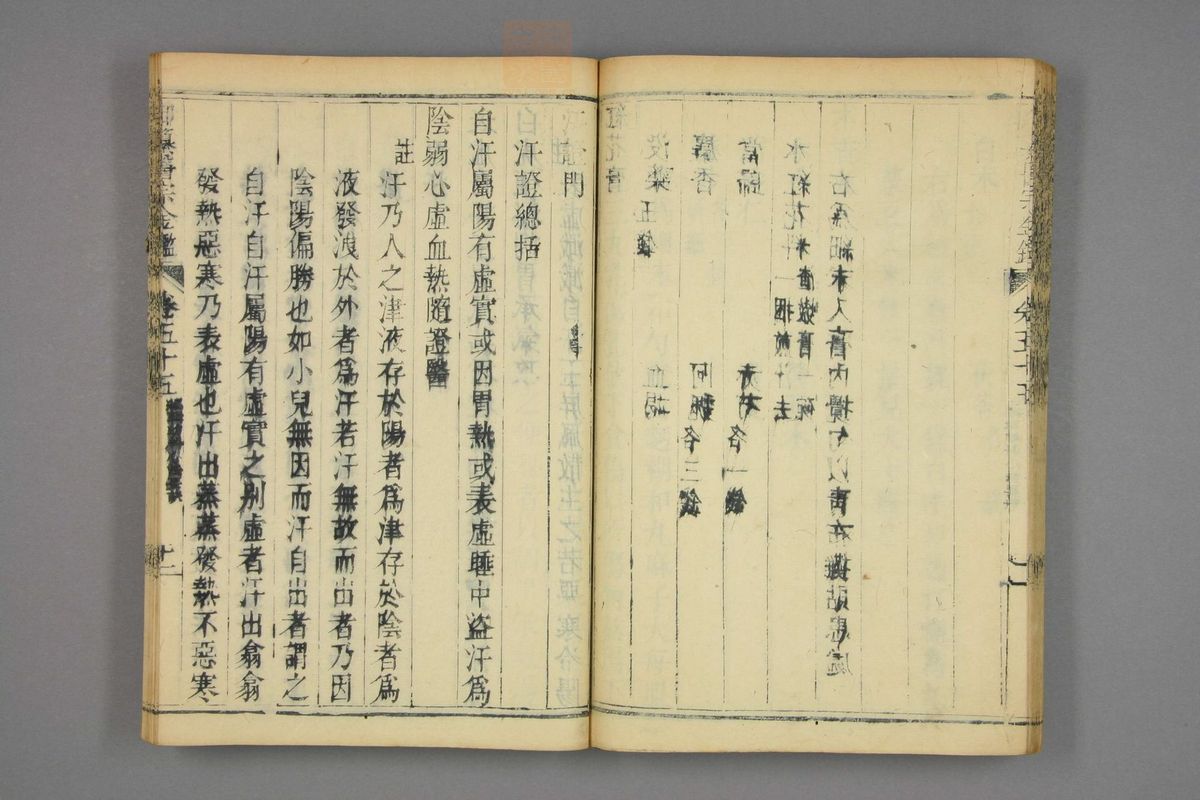 御纂醫宗金鑑 卷五十五
紅花膏
没藥五錢 血竭
麝香 阿魏各三錢
當歸 赤芍各一錢
水紅花料一捆煎汁去
渣熬膏一碗
右爲細末入膏內攪勻以青布攤貼患處
汗門
自汗證總括
自汗屬陽有虛實或因胃熱或表虛睡中盜汗爲
陰弱心虛血熱隨證醫
註汗乃人之津液存於陽者爲津存於陰者爲
液發洩於外者爲汗若汗無故而出者乃因
陰陽偏勝也如小兒無因而汗自出者謂之
自汗自汗屬陽有虛實之別虛者汗出翕翕
發熱惡寒乃表虛也汗出蒸蒸發熱不惡寒
御纂醫宗金鑑 卷五十五 十二